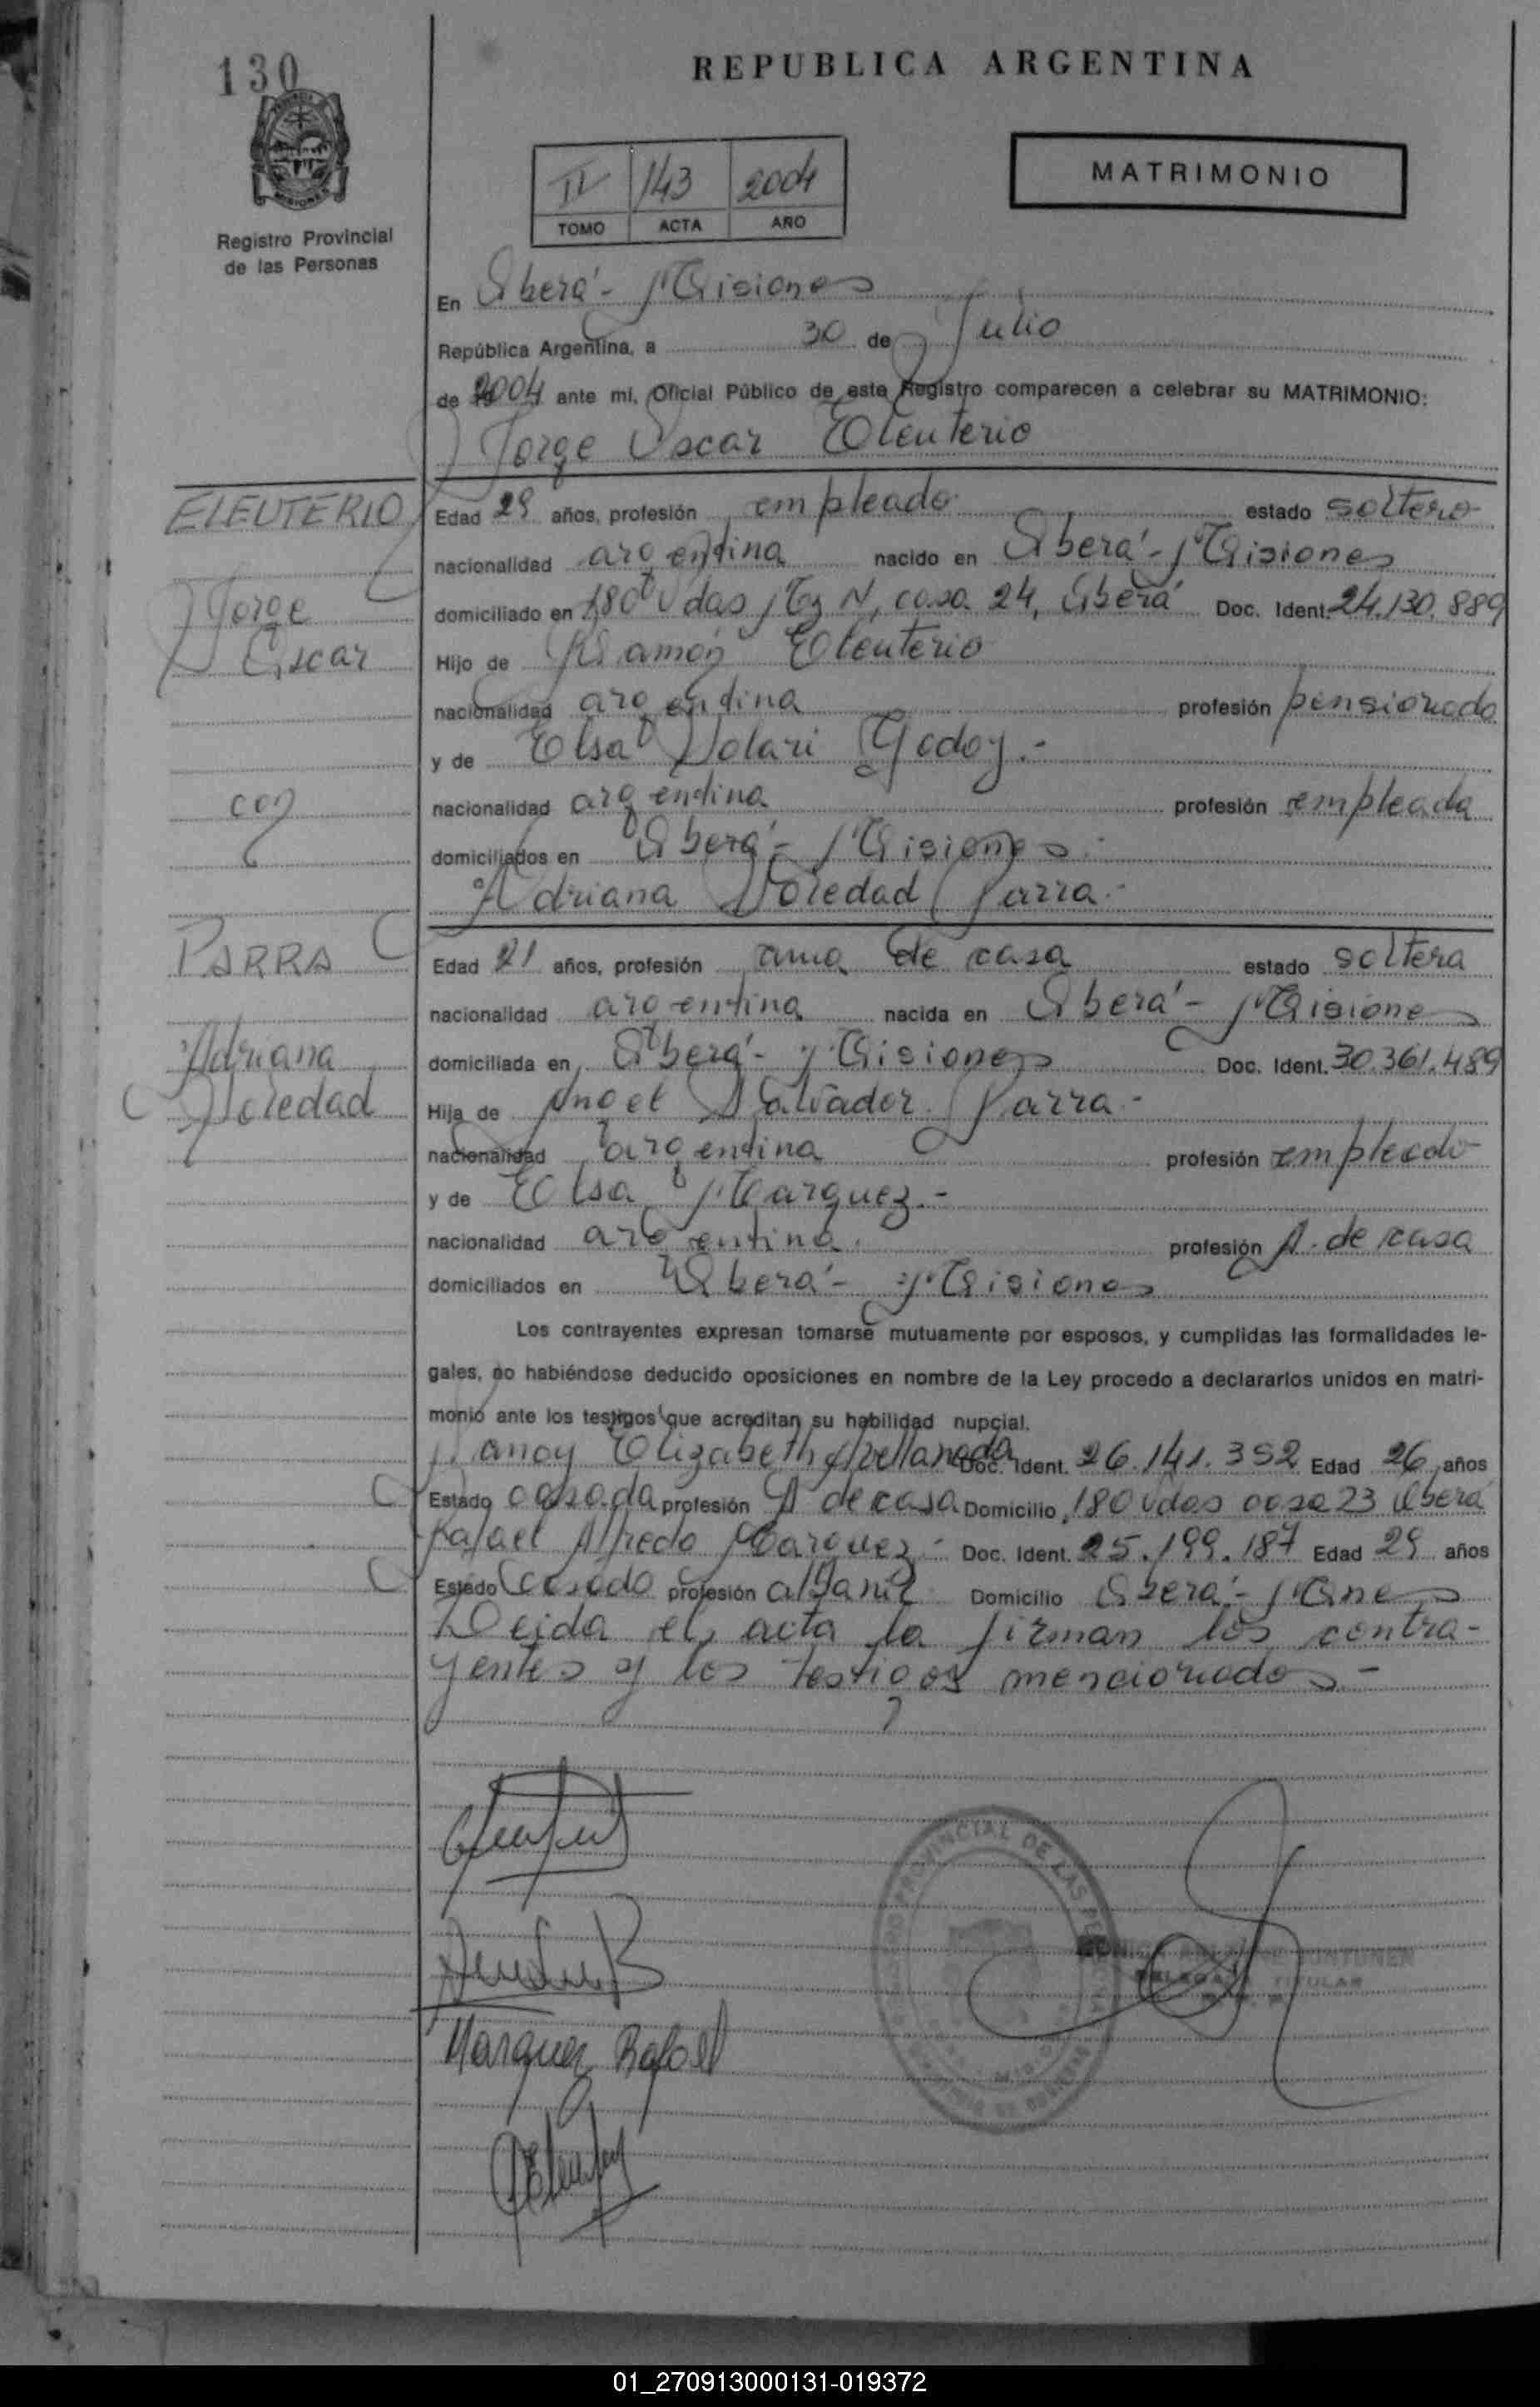 130
REPUBLICA ARGENTINA
MATRIMONIO
II 143 2004
TOMO ACTA AÑO
Registro Provincial
de las Personas
En Oberá - Misiones
República Argentina, a 30 de Julio
de 2004 ante mi, Oficial Público de este Registro comparecen a celebrar su MATRIMONIO:
Jorge Oscar Eleuterio
ELEUTERIO
Edad 29 años, profesión empleado estado soltero
nacionalidad argentina nacido en Oberá - Misiones
Jorge
domiciliado en 180 Vdas Mz N, casa 24, Oberá Doc. Ident. 24.130.889
Oscar
Hijo de Ramón Eleuterio
nacionalidad argentina profesión pensionado
y de Elsa Solari Godoy.-
con
nacionalidad argentina profesión empleada
domiciliados en Oberá - Misiones.-
Adriana Soledad Parra.-
PARRA
Edad 21 años, profesión ama de casa estado soltera
nacionalidad argentina nacida en Oberá - Misiones
Adriana
domiciliada en Oberá - Misiones Doc. Ident. 30.361.489
Soledad
Hija de Angel Salvador Parra.-
nacionalidad argentina profesión empleado
y de Elsa Marquez.-
nacionalidad argentina. profesión A. de casa
domiciliados en Oberá - Misiones
Los contrayentes expresan tomarse mutuamente por esposos, y cumplidas las formalidades le-
gales, no habiéndose deducido oposiciones en nombre de la Ley procedo a declararlos unidos en matri-
monio ante los testigos que acreditan su habilidad nupcial.
Nancy Elizabeth Avellaneda Doc. Ident. 26.141.352 Edad 26 años
Estado casada profesión A de casa Domicilio 180 Vdas casa 23 Oberá
Rafael Alfredo Marquez.- Doc. Ident. 25.199.187 Edad 29 años
Estado Casado profesión albañil Domicilio Oberá - Mnes
Leida el acta la firman los contra-
yentes y los testigos mencionados.-
REGISTRO PROVINCIAL DE LAS PERSONAS
DELEGADA TITULAR
Marquez Rafael
01_270913000131-019372